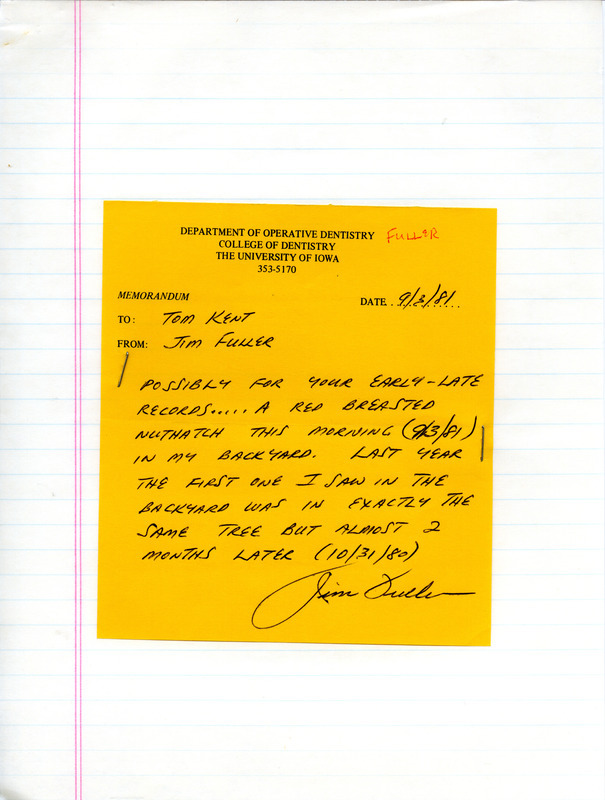 DEPARTMENT OF OPERATIVE DENTISTRY FULLER
COLLEGE OF DENTISTRY
THE UNIVERSITY OF IOWA
353-5170
MEMORANDUM
DATE. 9/3/81
TO: TOM KENT
FROM: JIM FULLER
POSSIBLY FOR YOUR EARLY-LATE
RECORDS..... A RED BREASTED
NUTHATCH THIS MORNING (9/3/81)
IN MY BACKYARD. LAST YEAR
THE FIRST ONE I SAW IN THE
BACKYARD WAS IN EXACTLY THE
SAME TREE BUT ALMOST 2
MONTHS LATER (10/31/80)
Jim Fuller